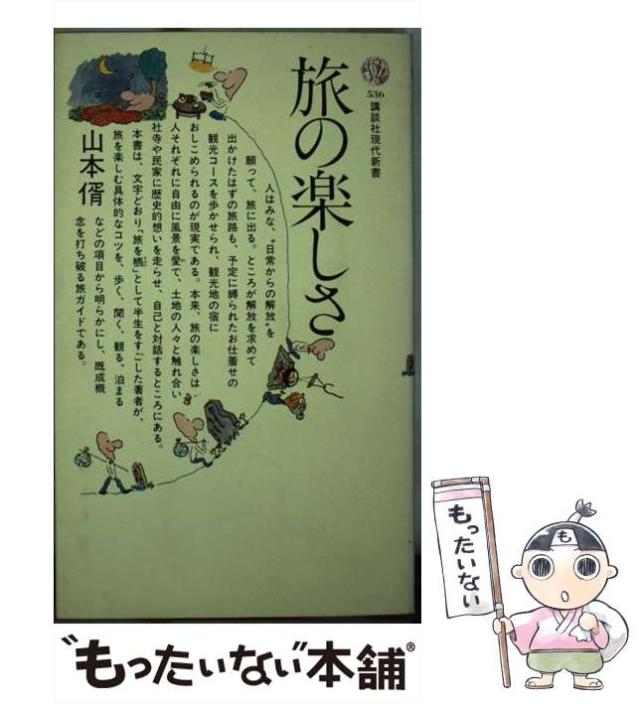 旅の楽しさ
536
講談社現代新書
人はみな、“日常からの解放”を
願って、旅に出る。ところが解放を求めて
出かけたはずの旅路も、予定に縛られたお仕着せの
観光コースを歩かせられ、観光地の宿に
おしこめられるのが現実である。本来、旅の楽しさは、
人それぞれに自由に風景を愛で、土地の人々と触れ合い
社寺や民家に歴史的想いを走らせ、自己と対話するところにある。
本書は、文字どおり「旅を栖」として半生をすごした著者が、
旅を楽しむ具体的なコツを、歩く、聞く、観る、泊まる
などの項目から明らかにし、既成概
念を打ち破る旅ガイドである。
山本偦
もったいない
も
“もったいない”本舗®